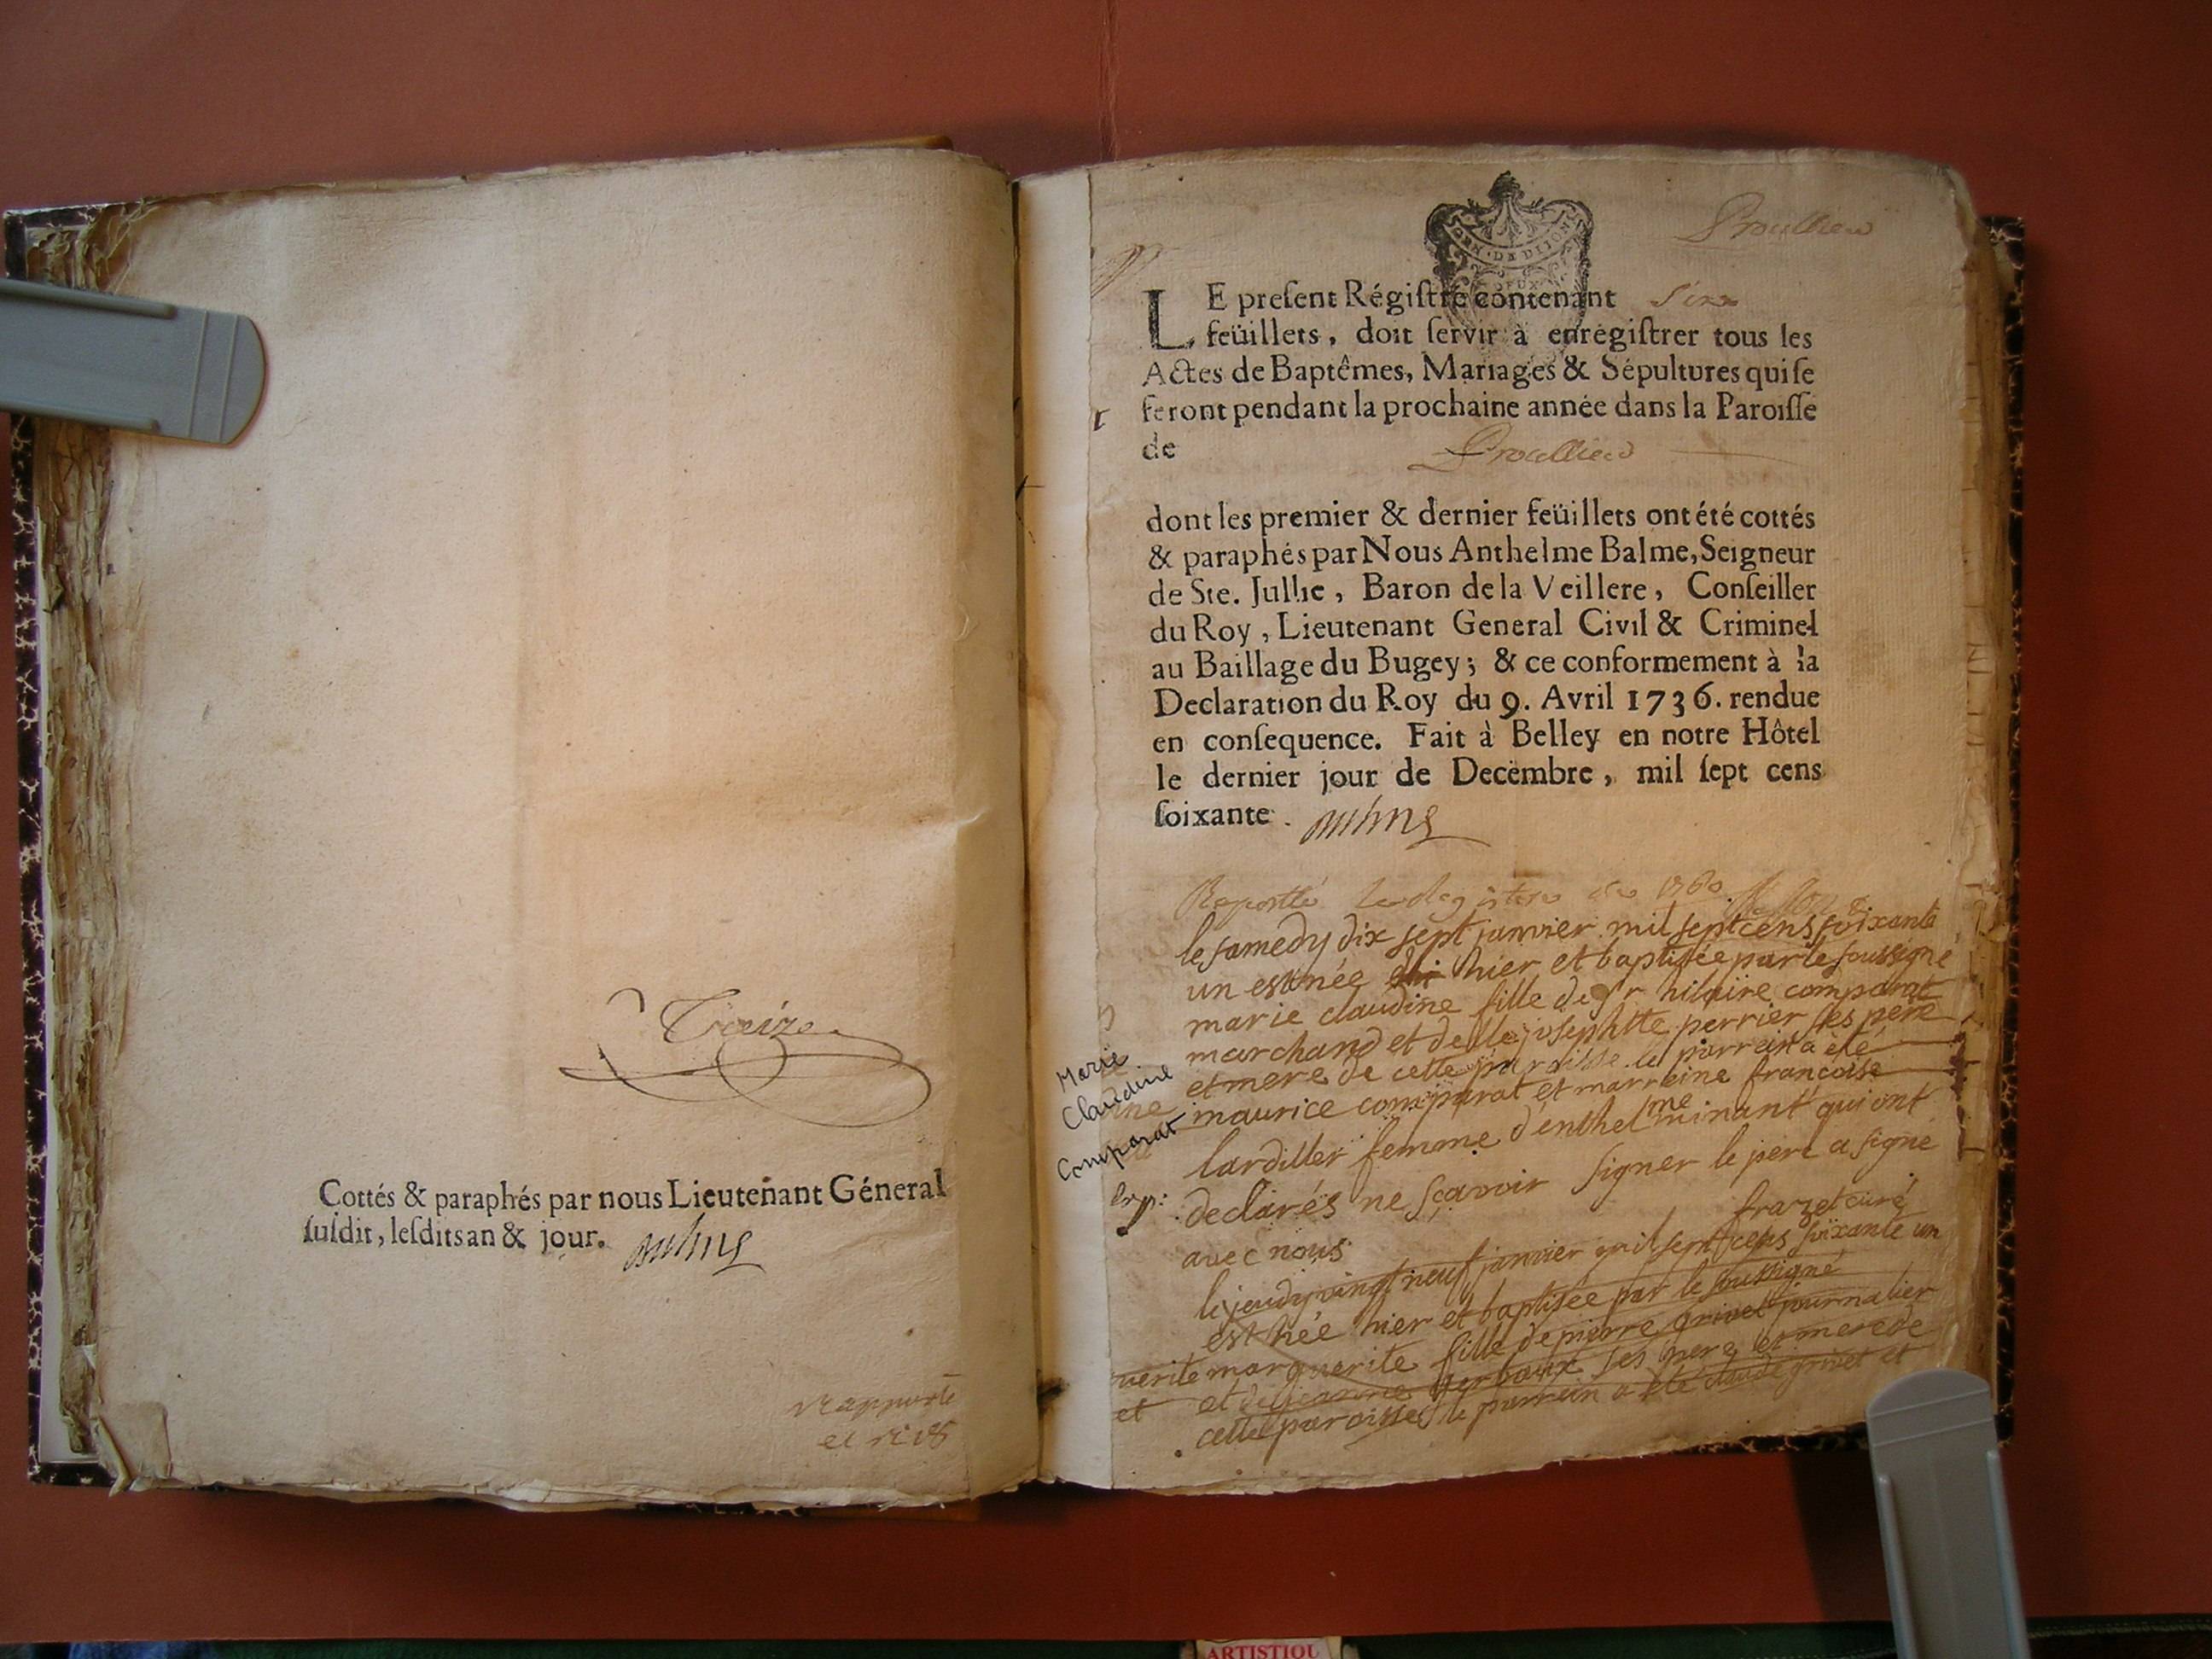 Treize
Cottés & paraphés par nous Lieutenant Géneral
susdit, lesdits an & jour.
Rapporté
GEN. DE DIJON
Proullieu
LE present Régistre contenant Six
feüillets, doit servir à enrégistrer tous les
Actes de Baptêmes, Mariages & Sépultures qui se
feront pendant la prochaine année dans la Paroisse
de Proullieu
dont les premier & dernier feüillets ont été cottés
& paraphés par Nous Anthelme Balme, Seigneur
de Ste. Jullie, Baron de la Veillere, Conseiller
du Roy, Lieutenant General Civil & Criminel
au Baillage du Bugey; & ce conformement à la
Declaration du Roy du 9. Avril 1736. rendue
en consequence. Fait à Belley en notre Hôtel
le dernier jour de Decembre, mil sept cens
soixante.
1760
le samedy dix sept janvier mil sept cens soixante
un est née hier et baptisée par le soussigné
marie claudine fille de sr hilaire comparat
marchand et de lle josephtte perrier ses pere
et mere de cette parroisse le parrein a été
maurice comparat et marreine francoise
lardiller femme d'enthelme minant qui ont
declarés ne sçavoir signer le pere a signé
avec nous frazet curé
Marie
Claudine
Comparat
le jeudy vingt neuf janvier mil sept cens soixante un
est née hier et baptisée par le soussigné
marguerite fille de pierre grivet journalier
et de jeanne ses pere et mere de
cette paroisse le parrein a été claude grivet et
ARTISTIQU